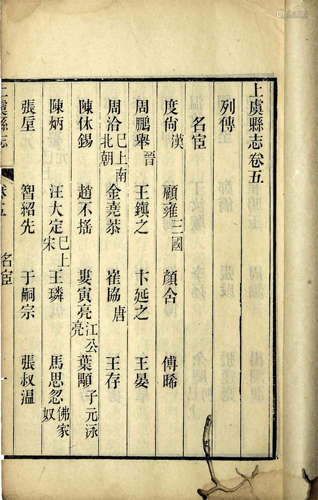 上虞縣志卷五
列傳
名宦
度尚漢 顧雍三國 顏含 傅晞
周鵬舉晉 王鎮之 卞延之 王晏
周洽已上南北朝 金堯恭 崔協唐 王存
陳休錫 趙不搖 婁寅亮江公亮 葉顒子元泳
陳炳 汪大定已上宋 王璘 馬思忽佛家奴
張垕 智紹先 于嗣宗 張叔溫
上虞縣志 卷五 名宦 一